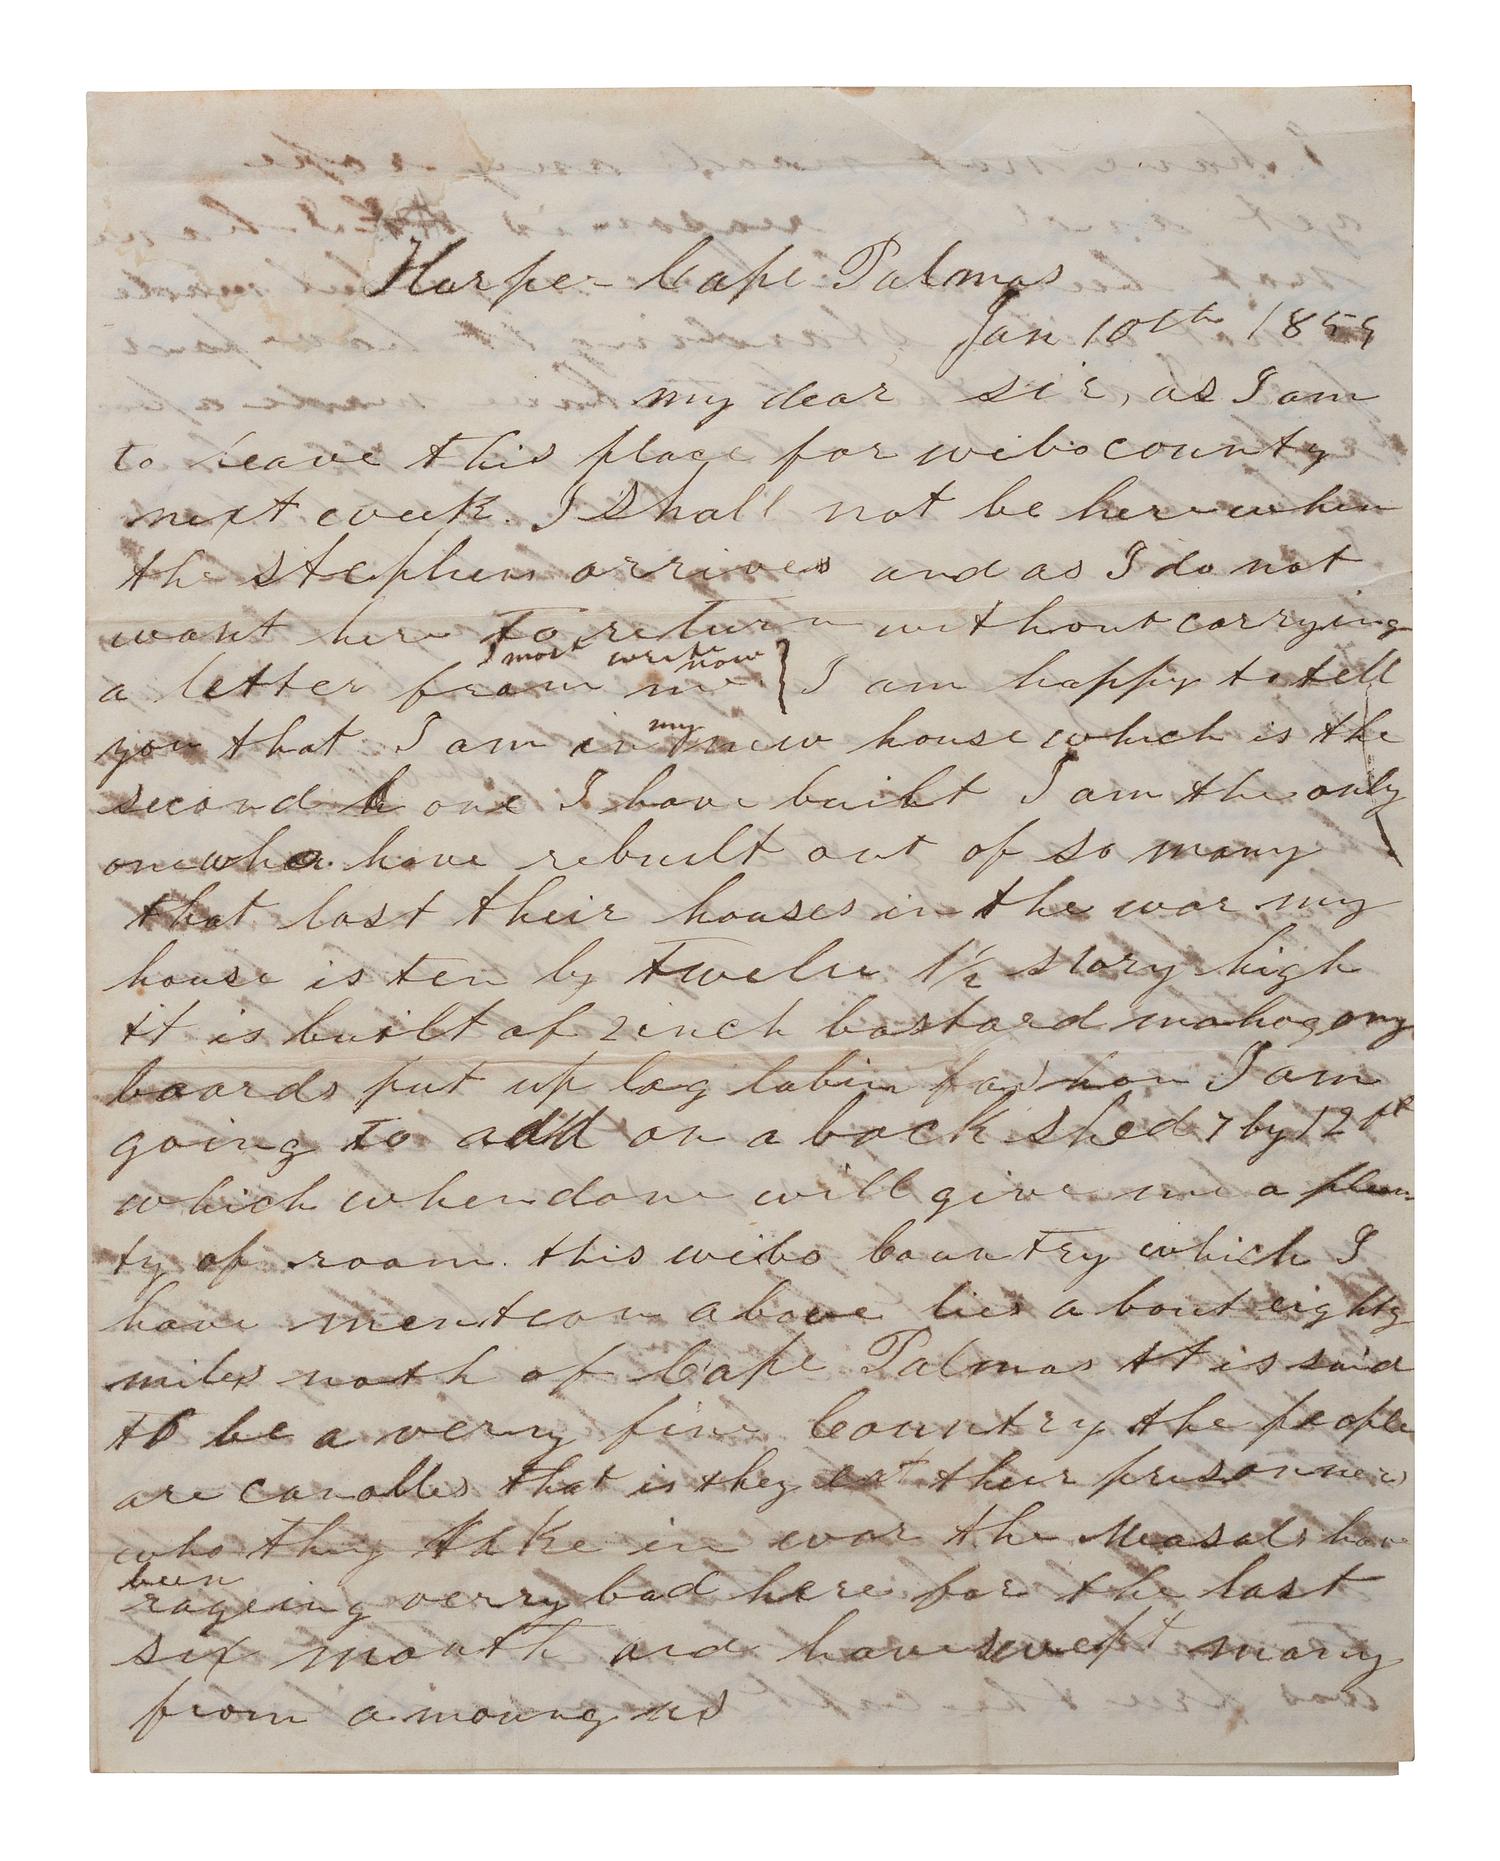 Harper Cape Palmas
Jan 10th 1859
my dear sir, as I am
to leave this place for webo county
next week. I shall not be here when
the stephens arrives and as I do not
want her to return without carrying
I most write now
a letter from me } I am happy to tell
my
you that I am in new house which is the
second one I have built I am the only
one who have rebuilt out of so many
that lost their houses in the war my
house is ten by twelve 1½ story high
it is built of 2 inch bastard mahogany
boards put up log cabin fashon I am
going to add on a back shed 7 by 12 ft
which when done will give me a plen
ty of room. this webo Country which I
have mention above lies about eighty
miles noth of Cape Palmas it is said
to be a verry fine Country the people
are canables that is they eat their prisonners
who they take in war the Measals have
been
rageing verry bad here for the last
six month and have swept many
from amoung us